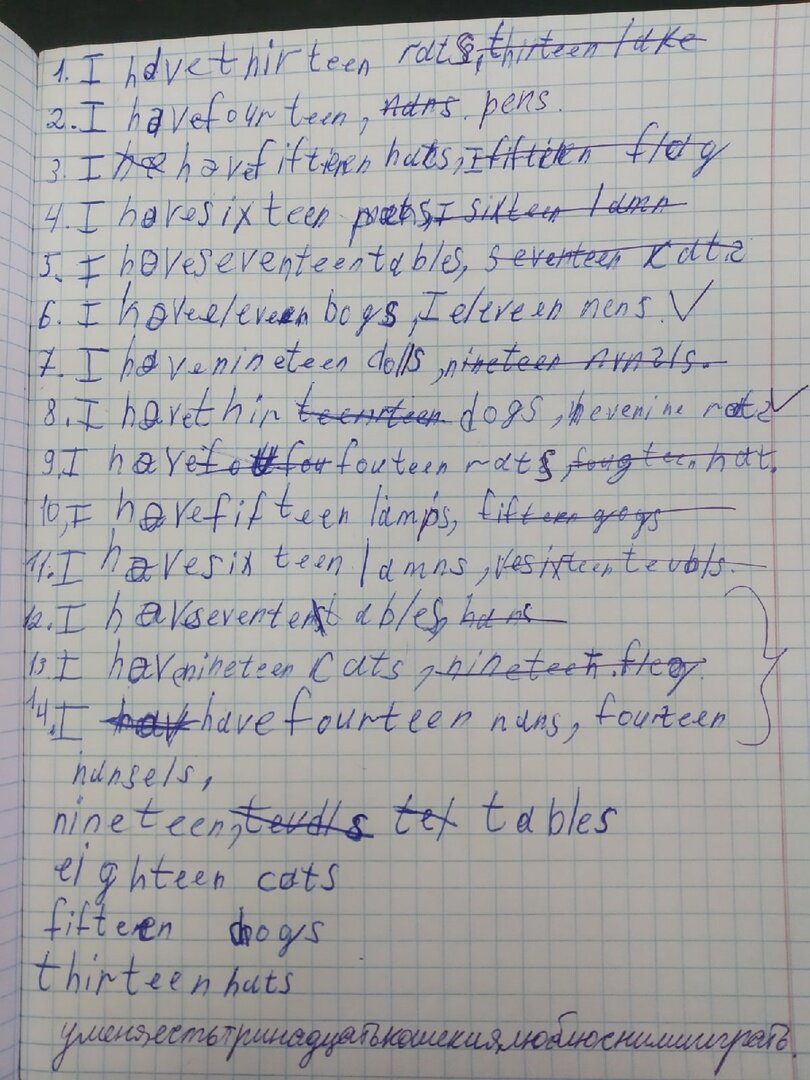 1. I have thirteen rats, thirteen lake
2. I have fourteen, nans. pens.
3. I he have fifteen hats, I fifteen flag
4. I have sixteen I sixteen lamn
5. I have seventeen tables, seventeen cats
6. I have eleven bogs, I eleven nens.
7. I have nineteen dolls, nineteen
8. I have thir dogs, rats
9. I have fouteen rats, hat.
10, I have fifteen lamps, fifteen gogs
11. I have sixteen lamns,
12. I have seventeen tables, hans
13 I have nineteen cats, nineteen flag
14. I hav have fourteen nans, fourteen
nansels,
nineteen, tex tables
eighteen cats
fifteen dogs
thirteen hats
уменяестьтринадцатькошекия,люблюснимииграть.